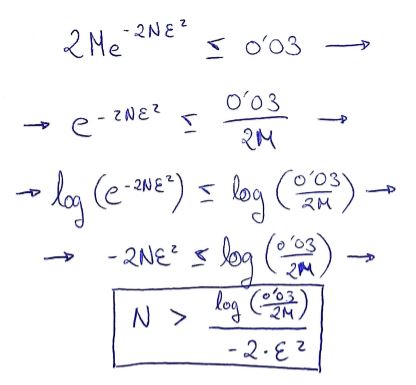 2Me^{-2Nε²} ≤ 0'03 →
→ e^{-2Nε²} ≤ \frac{0'03}{2M} →
→ log(e^{-2Nε²}) ≤ log(\frac{0'03}{2M}) →
→ -2Nε² ≤ log(\frac{0'03}{2M}) →
N > \frac{log(\frac{0'03}{2M})}{-2·ε²}